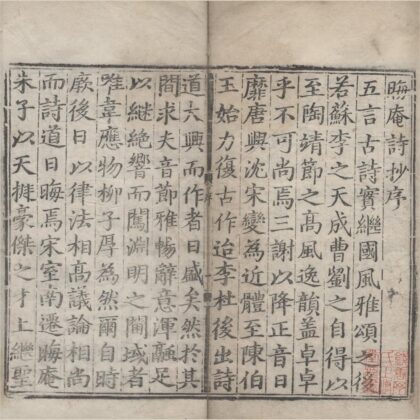 晦庵詩抄序
五言古詩實繼國風雅頌之後
若蘇李之天成曹劉之自得以
至陶靖節之高風逸韻蓋卓卓
乎不可尚焉三謝以降正音日
靡唐興沈宋變為近體至陳伯
玉始力復古作迨李杜後出詩
道大興而作者日盛矣然於其
間求夫音節雅暢辭意渾融足
以繼絶響而闖淵明之閫域者
唯韋應物柳子厚為然爾自時
厥後日以律法相高議論相尚
而詩道日晦焉宋室南遷晦庵
朱子以天挺豪傑之才上繼聖